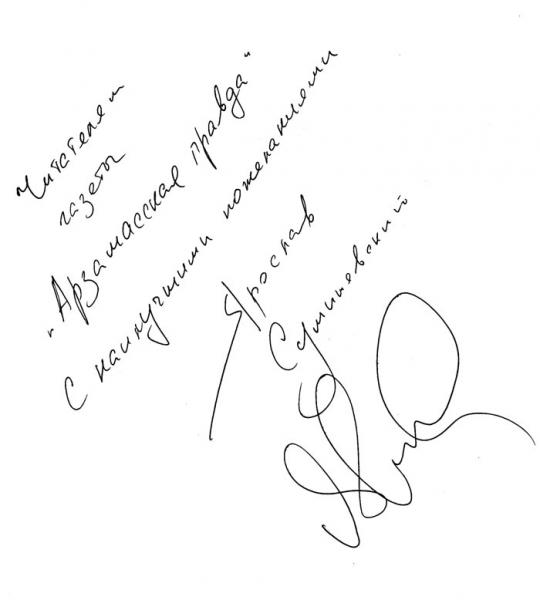 Читателям
газеты
"Арзамасская правда"
С наилучшими пожеланиями
Ярослав
Сумишевский